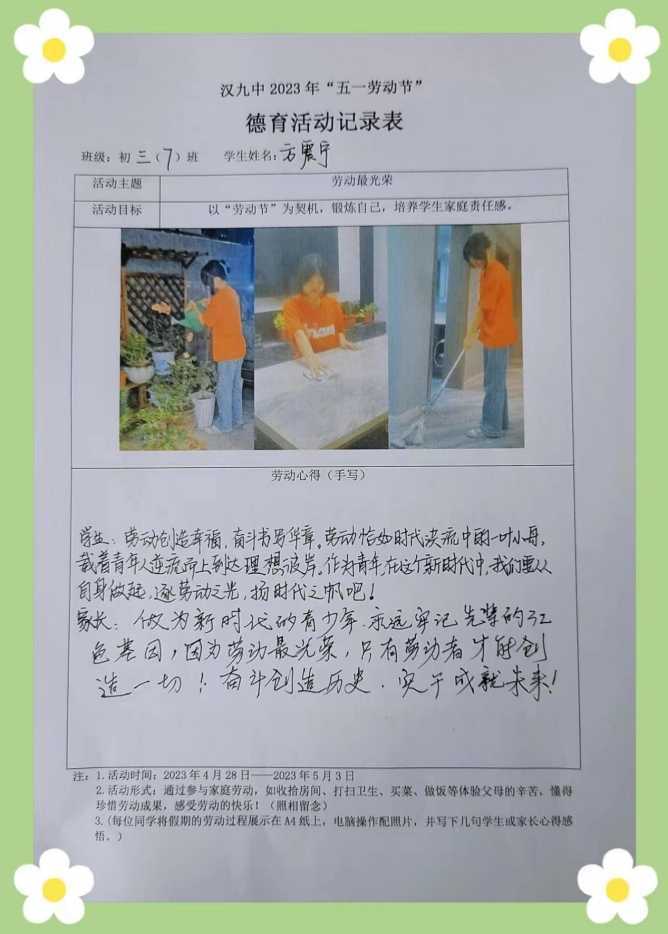 汉九中 2023 年“五一劳动节”
德育活动记录表
班级：初 三（7）班 学生姓名：方震宇
活动主题 劳动最光荣
活动目标 以“劳动节”为契机，锻炼自己，培养学生家庭责任感。
劳动心得（手写）
学生：劳动创造幸福，奋斗书写华章。劳动恰如时代洪流中的一叶小舟，
载着青年人逆流而上到达理想彼岸。作为青年，在这个新时代中，我们要从
自身做起，逐劳动之光，扬时代之帆吧！
家长：做为新时代的青少年，永远牢记先辈的红
色基因，因为劳动最光荣，只有劳动者才能创
造一切！奋斗创造历史，实干成就未来！
注：1.活动时间：2023 年 4 月 28 日——2023 年 5 月 3 日
2.活动形式：通过参与家庭劳动，如收拾房间、打扫卫生、买菜、做饭等体验父母的辛苦，懂得
珍惜劳动成果，感受劳动的快乐！（照相留念）
3.(每位同学将假期的劳动过程展示在 A4 纸上，电脑操作配照片，并写下几句学生或家长心得感
悟。）